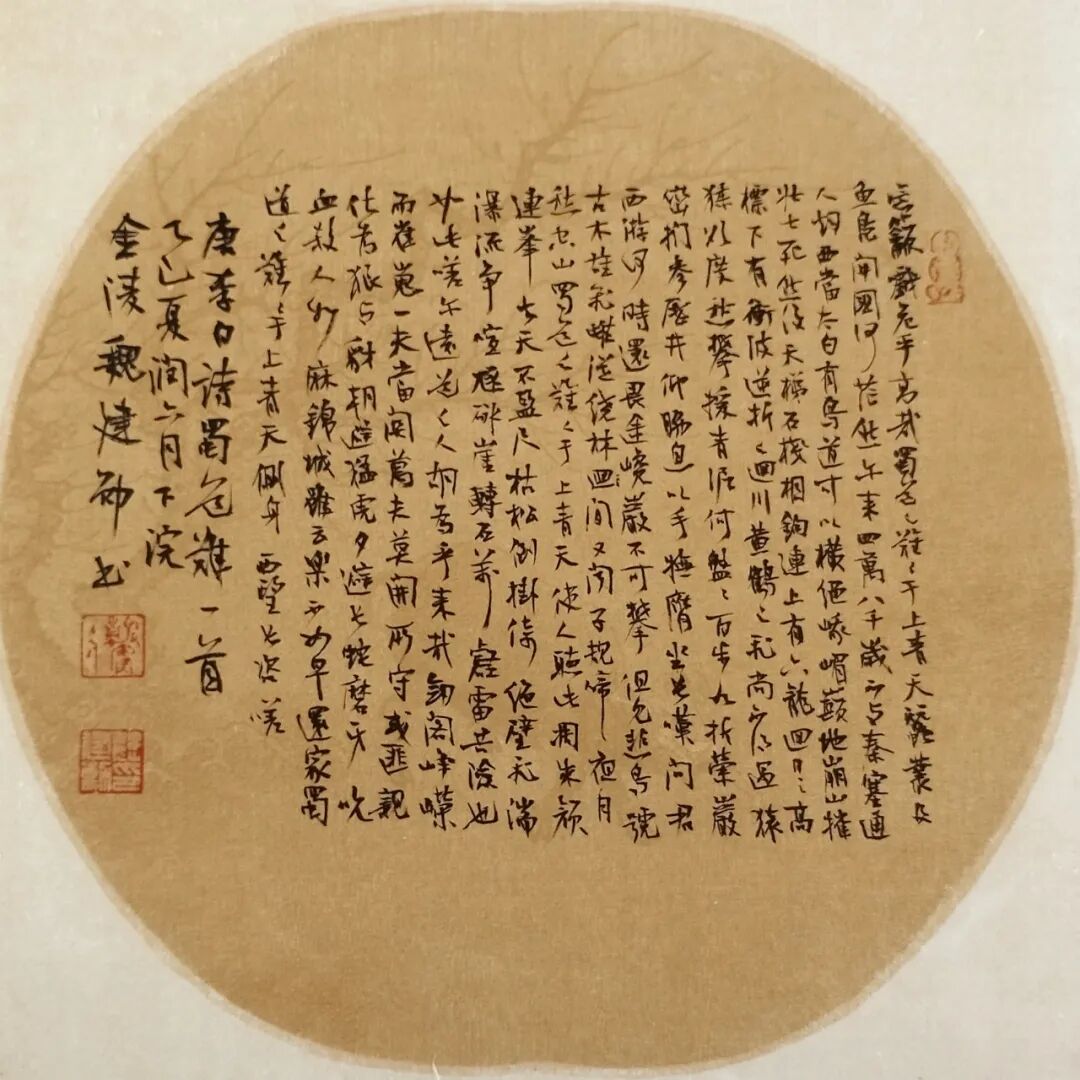 籲戲危乎高哉蜀道之難〻于上青天蠶叢及
魚鳧開國何茫然尔来四萬八千歲不与秦塞通
人烟西當太白有鳥道可以横绝峨嵋巔地崩山摧
壮士死然後天梯石棧相鈎連上有六龍回日之高
標下有衝波逆折之迴川黄鶴之飛尚不得過猿
猱欲度愁攀援青泥何盤〻百步九折縈巖
巒捫參歷井仰脇息以手撫膺坐長嘆問君
西遊何時還畏途巉巖不可攀但見悲鳥號
古木雄飛雌從绕林間又聞子規啼夜月
愁空山蜀道之難〻于上青天使人聽此凋朱颜
連峯去天不盈尺枯松倒掛倚绝壁飛湍
瀑流争喧豗砯崖轉石萬壑雷其險也
如此嗟尔遠道之人胡為乎来哉劍閣峥嶸
而崔嵬一夫當関萬夫莫開所守或匪親
化為狼与豺朝避猛虎夕避長蛇磨牙吮
血殺人如麻錦城雖云樂不如早還家蜀
道之難〻于上青天側身西望長咨嗟
唐李白詩蜀道難一首
乙巳夏潤六月下浣
金陵魏建书